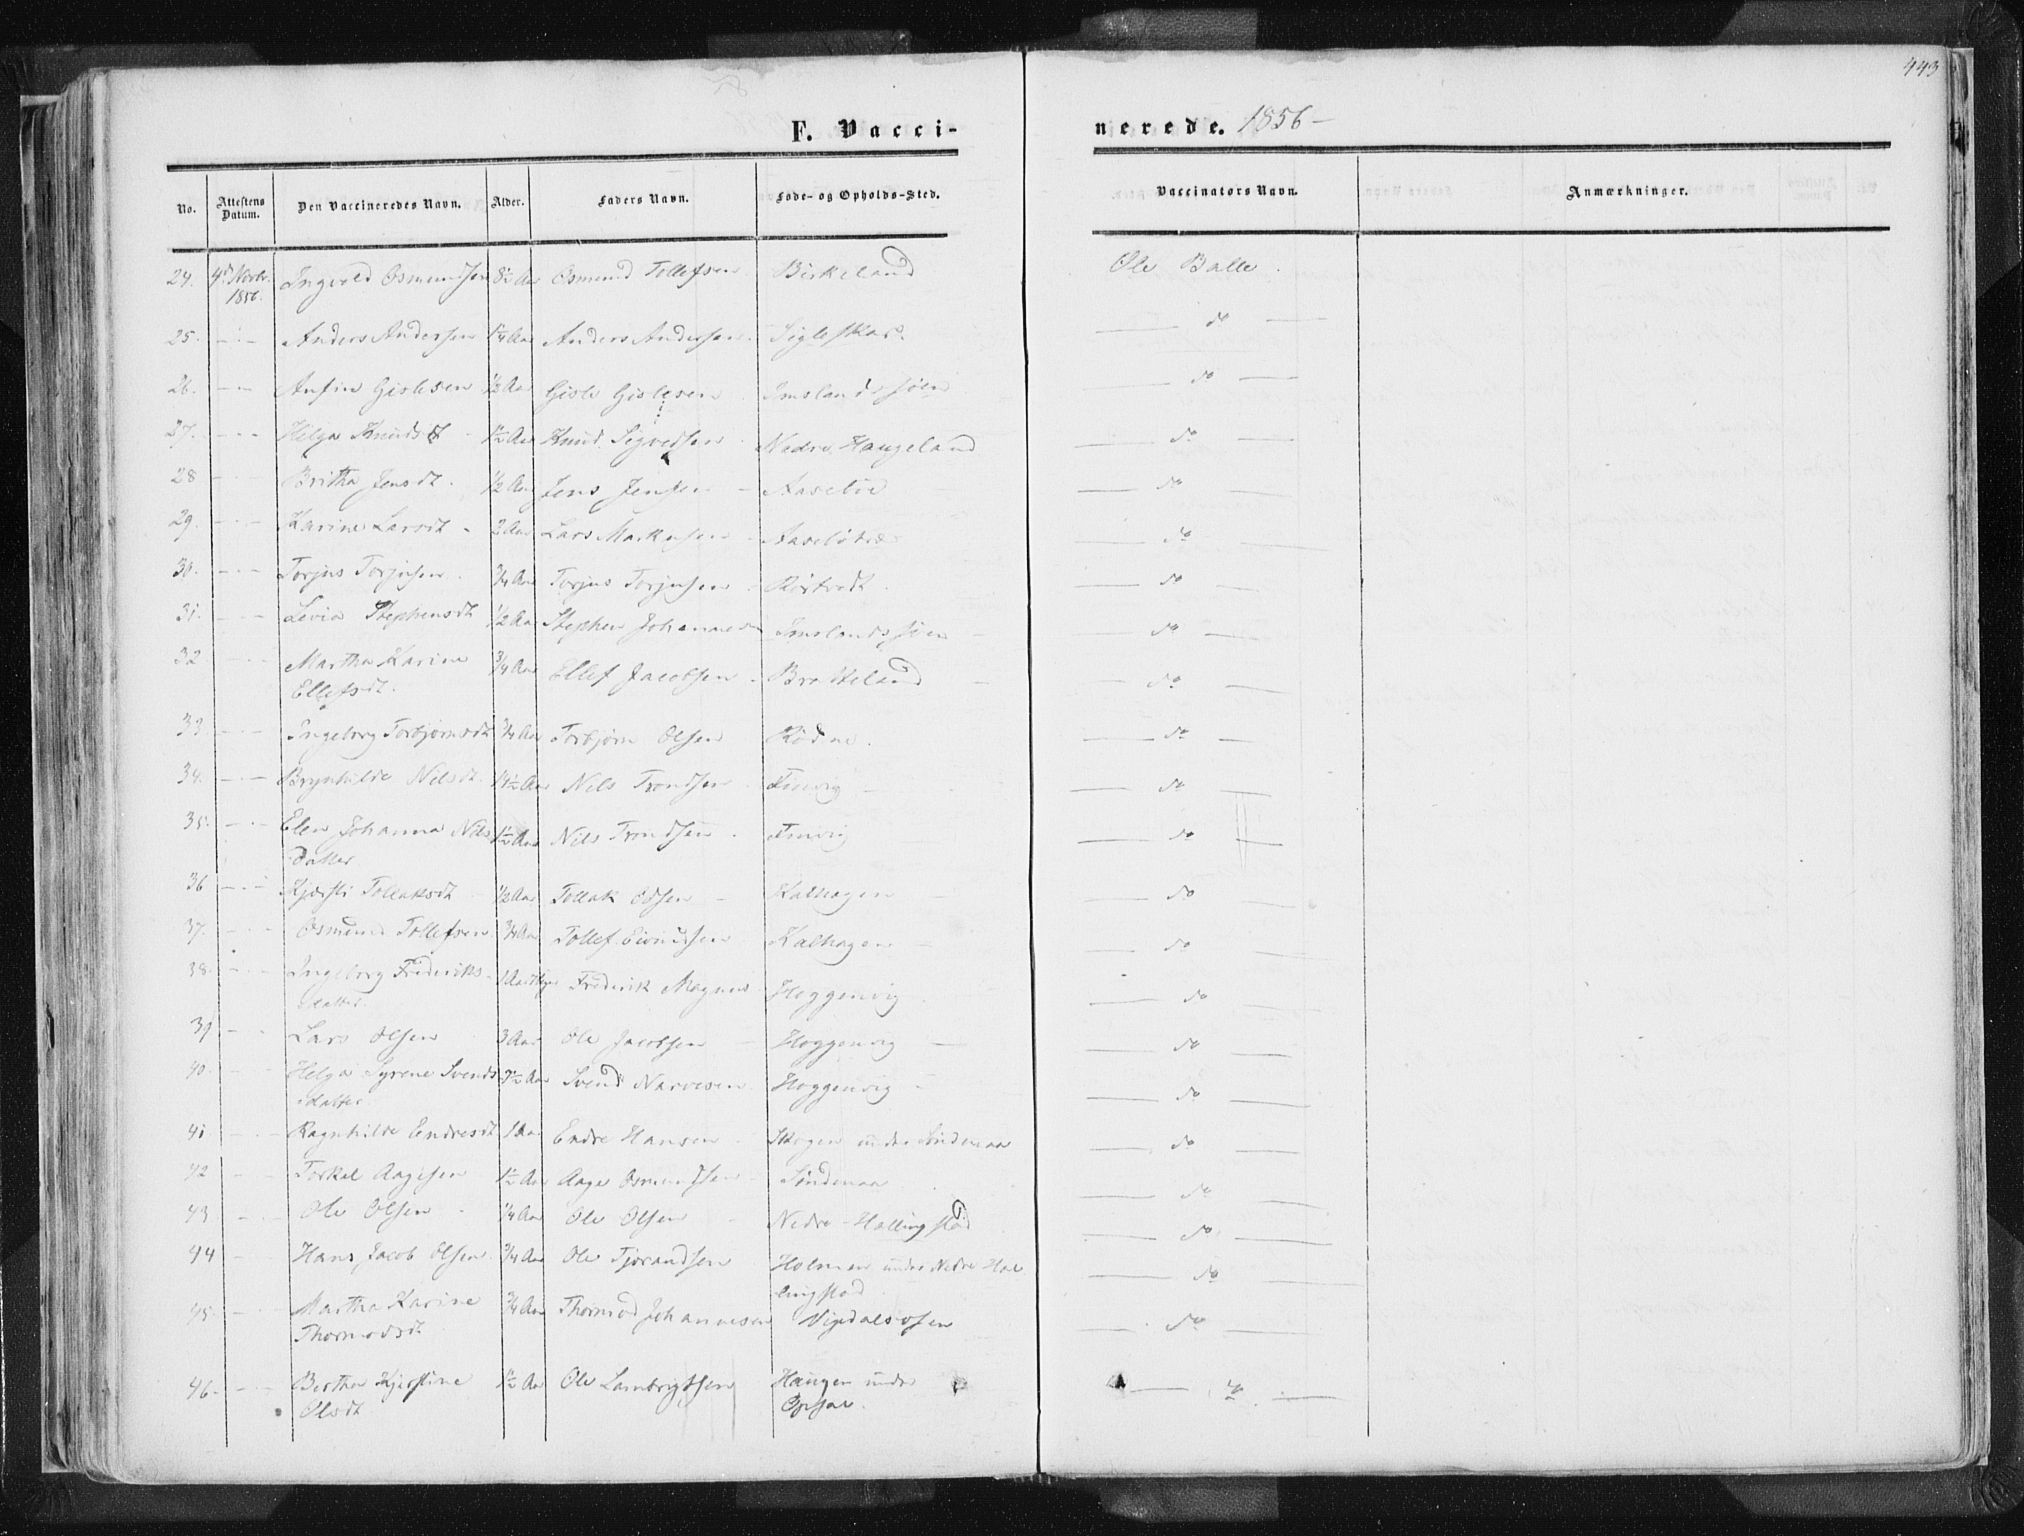 443
F. Vacci-
nerede. 1856-
No. Attestens Datum. Den Vaccineredes Navn. Alder. Faders Navn. Føde- og Opholds-Sted. Vaccinators Navn. Anmærkninger.
24. 4d Novbr. 1856. Ingvald Osmundsen 8½ Aar Osmund Tollefsen Birkeland Ole Balle.
25. Anders Andersen Aar Anders Andersen Sigleskar. do
26. Anfin Gislesen ½ Aar Gisle Gislesen Imslandssøen do
27. Helga Knudsdt 1½ Aar Knud Sigvedsen Nedre Haugeland do
28 Britha Jensdt. ½ Aar Jens Jensen Aasebøe do
29. Karine Larsdt 2 Aar Lars Markusen do
30. Torjus Torjusen ¾ Aar Torjus Torjusen Røstvedt. do
31. Levia Stephensdt ½ Aar Stephen Johannesen Imslandssøen do
32 Martha Karine Ellefsdt. ¾ Aar Ellef Jacobsen Bratteland do
33. Ingeborg Torbjørnsdt ¾ Aar Torbjørn Olsen Rødne. do
34. Brynhilde Nilsdt. 4½ Aar Nils Trondsen Finvig do
35. Elen Johanna Nils datter 1½ Aar Nils Trondsen Finvig do
36 Kjersti Tollaksdt ½ Aar Tollak Kalhagen do
37. Osmund Tollefsen ¾ Aar Tollef Eivindsen Kalhagen do
38. Ingeborg Frideriks- datter. 1 Aar Friderik Magnus Hoggenvig do
39. Lars Olsen 3 Aar Ole Jacobsen Hoggenvig do
40. Helga Syrene Svends datter Aar Svend Narvesen Hoggenvig do
41 Ragnhilde Endresdt 1 Aar Endre Hansen Skogen under Søndenaa do
42 Torkel Aagesen 1½ Aar Aage Osmundsen Søndenaa do
43 Ole Olsen ¼ Aar Ole Olsen Nedre-Hallingstad do
44 Hans Jacob Olsen ¾ Aar Ole Tjørandsen Holmen under Nedre Hal lingstad. do
45. Martha Karine Thormodsdt ¾ Aar Thormod Johannesen Vigdalsosen do
46. Bertha Kjerstine Olsdt 1½ Aar Ole Lambregtsen Haugen under Opsal. do